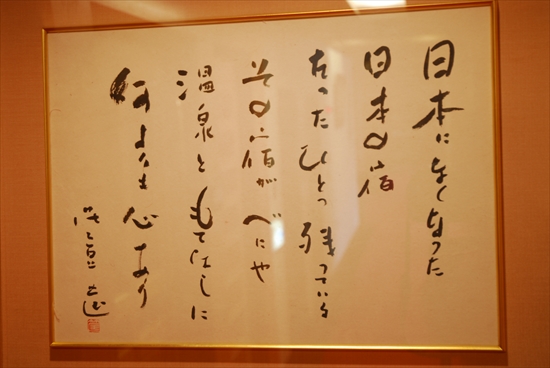 日本になくなった
日本の宿
たったひとつ残っている
その宿がべにや
温泉ともてなしに
何よりも心あり